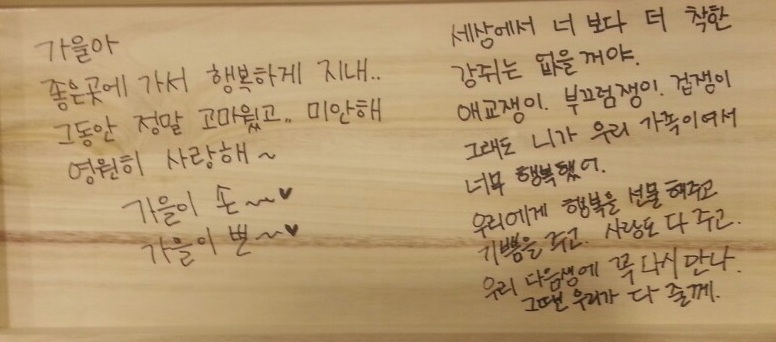 가을아
좋은곳에 가서 행복하게 지내..
그동안 정말 고마웠고.. 미안해
영원히 사랑해~
가을이 손~~♥
가을이 뽀~♥
세상에서 너 보다 더 착한
강쥐는 없을꺼야.
애교쟁이. 부끄럼쟁이. 겁쟁이
그래도 니가 우리 가족이여서
너무 행복했어.
우리에게 행복을 선물 해주고
기쁨을 주고. 사랑도 다 주고.
우리 다음생에 꼭 다시 만나.
그땐 우리가 다 줄께.